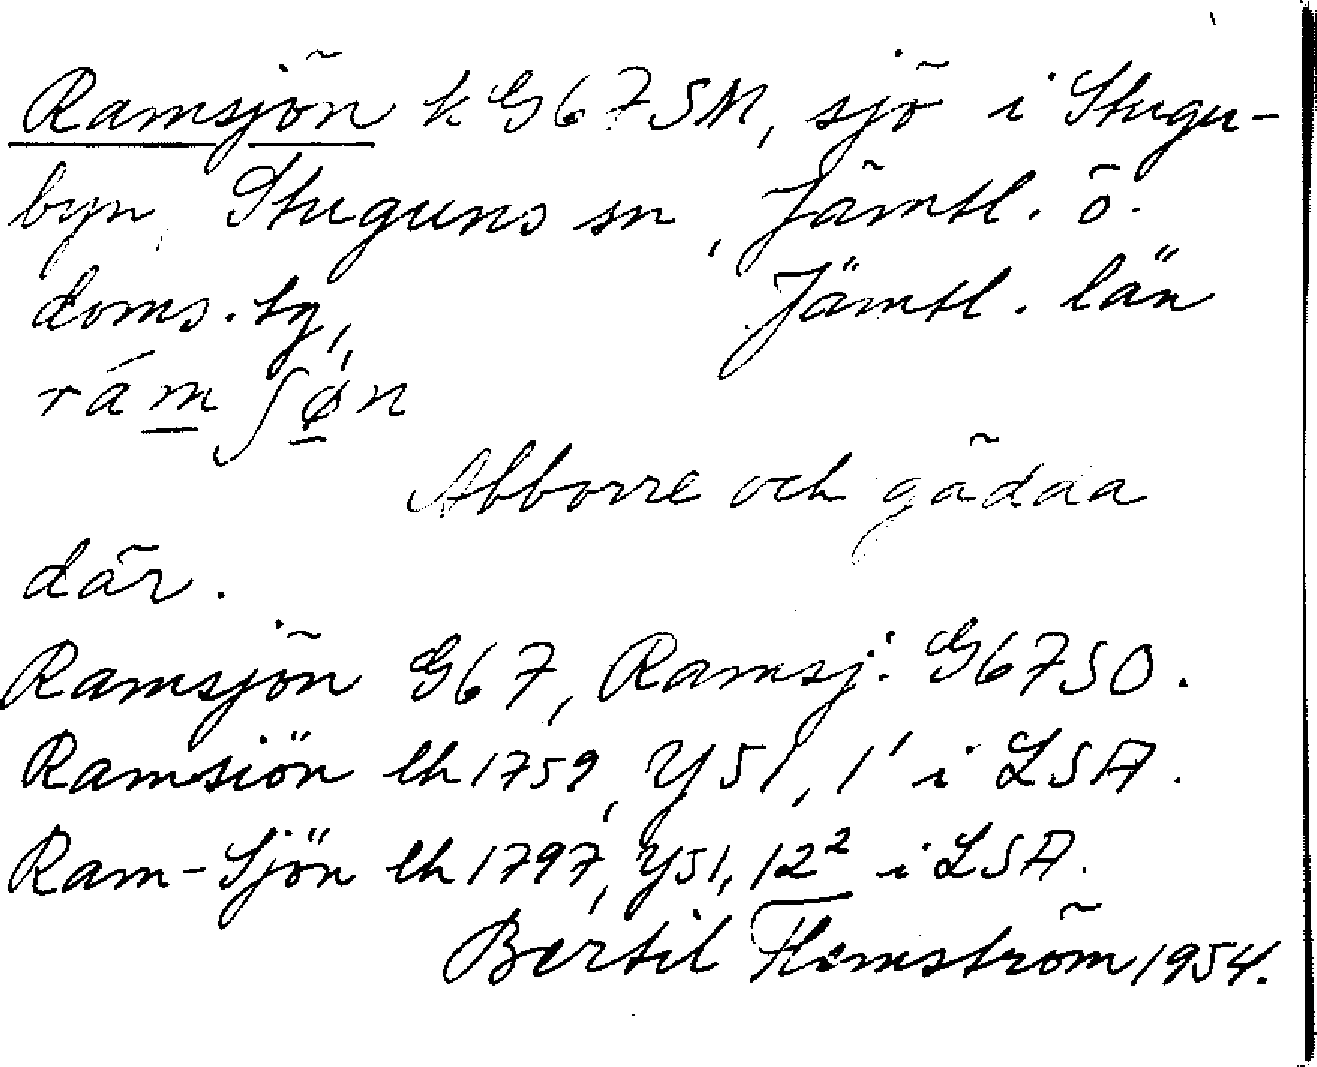 Ramsjön k G67SM, sjö i Stugu-
byn, Stuguns sn, Jämtl. ö.
doms. tg, Jämtl. län
rám ʃø̀n
Abborre och gädda
där.
Ramsjön G67, Ramsj: G67SO.
Ramsiön lh 1759, Y51, 1' i LSA.
Ram-Sjön lh 1797, Y51, 12² i LSA.
Bertil Flemström 1954.